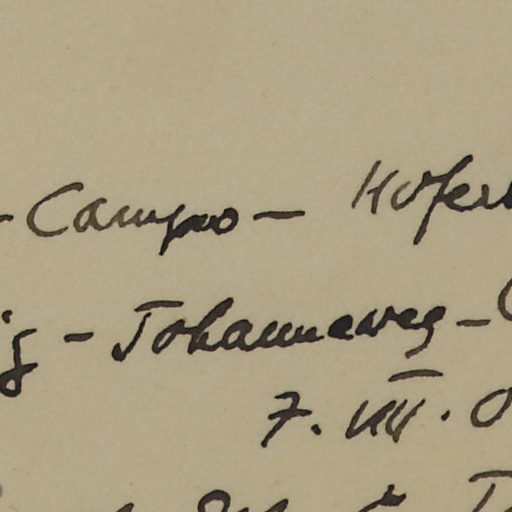 - Campo - Hofer
ig - Johanneweg -
7. VIII. 0